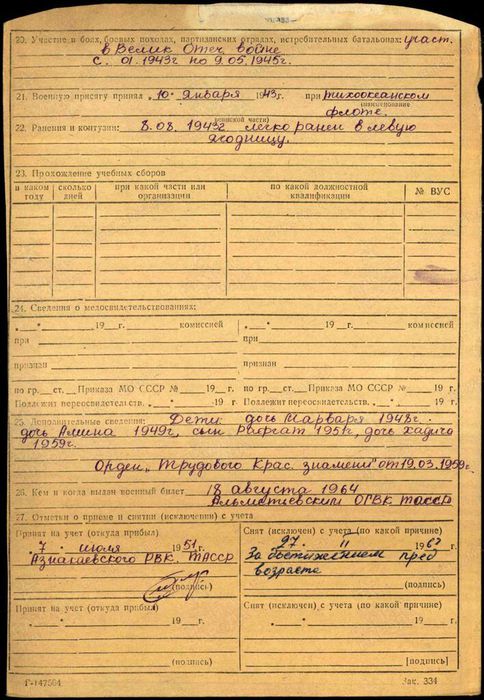 20. Участие в боях, боевых походах, партизанских отрядах, истребительных батальонах: участ.
в Велик Отеч войне
с. 01.1943г по 9.05.1945г.
21. Военную присягу принял „10" января 1943г. при тихоокеанском
(наименование
флоте.
воинской части)
22. Ранения и контузии: 8.08.1943г. легко ранен в левую
ягодицу.
23. Прохождение учебных сборов
в каком году сколько дней при какой части или организации по какой должностной квалификации № ВУС
24. Сведения о медосвидетельствованиях:
„ " 19 г. комиссией „ " 19 г. комиссией
при при
признан признан
по гр. ст. Приказа МО СССР № 19 г. по гр. ст. Приказа МО СССР № 19 г.
Подлежит переосвидетельств. 19 г. Подлежит переосвидетельств. 19 г.
25. Дополнительные сведения: Дети: дочь Марваря 1948г.
дочь Амина 1949г, сын Рафгат 1951г, дочь Хадича
1959г.
Орден „Трудового Крас. знамени" от 19.03.1959г.
26. Кем и когда выдан военный билет 18 августа 1964
Альметьевским ОГВК ТАССР
27. Отметки о приеме и снятии (исключении) с учета
Принят на учет (откуда прибыл) Снят (исключен) с учета (по какой причине)
„7" июля 1951г. 27. 11 1967
Азнакаевского РВК. ТАССР За достижением пред
возраста
(подпись) (подпись)
Принят на учет (откуда прибыл) Снят (исключен) с учета (по какой причине)
„ " 19 г. „ " 19 г.
(подпись) (подпись)
Г-147564 Зак. 334